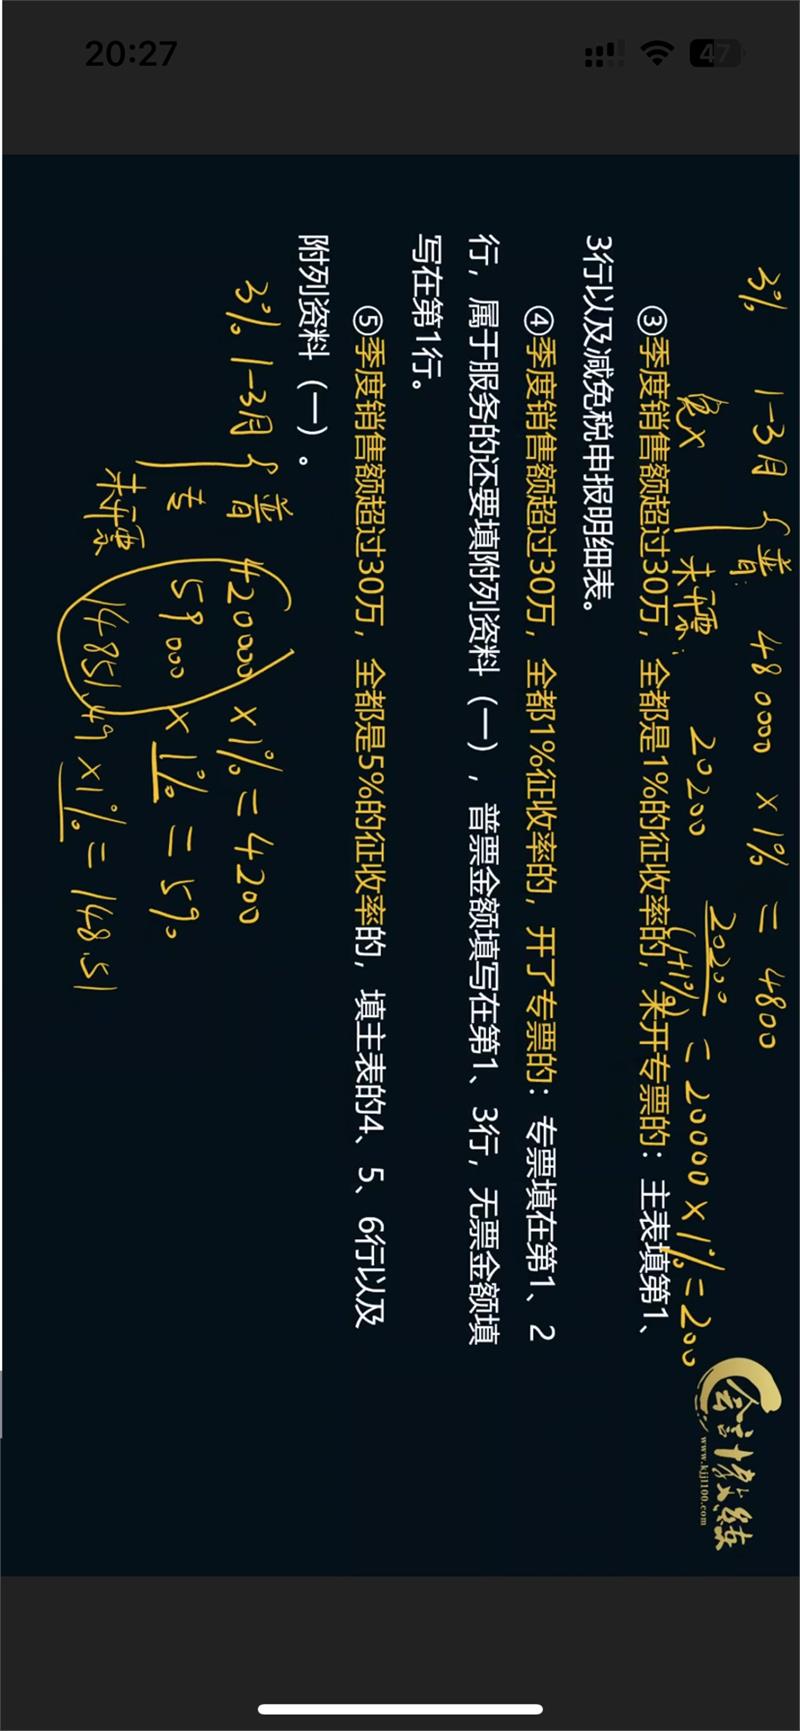 20:27
47
3% 1-3月 普: 480000 × 1% = 4800
免× 未开票: 20200 20200/(1+1%) = 20000 × 1% = 200
③季度销售额超过30万，全都是1%的征收率的，未开专票的：主表填第1、
3行以及减免税申报明细表。
④季度销售额超过30万，全都1%征收率的，开了专票的：专票填在第1、2
行，属于服务的还要填附列资料（一），普票金额填写在第1、3行，无票金额填
写在第1行。
⑤季度销售额超过30万，全都是5%的征收率的，填主表的4、5、6行以及
附列资料（一）。
3% 1-3月 普 420000 × 1% = 4200
专 59000 × 1% = 590
未开票 14851.49 × 1% = 148.51
会计教练
www.kjjl100.com